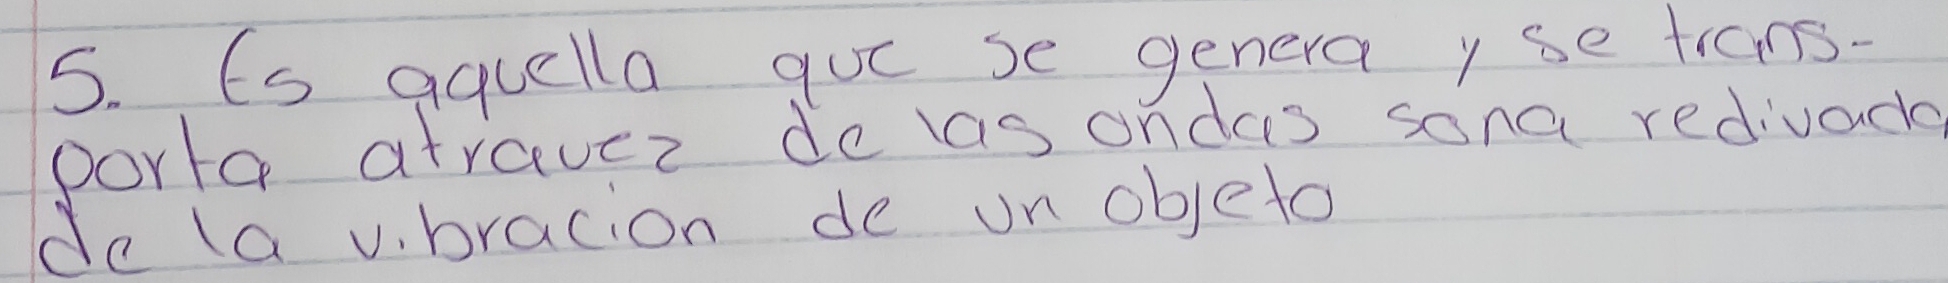 5. Es aquella que se genera y se trans-
porta atravez de las ondas sona redivada
de la vibracion de un objeto